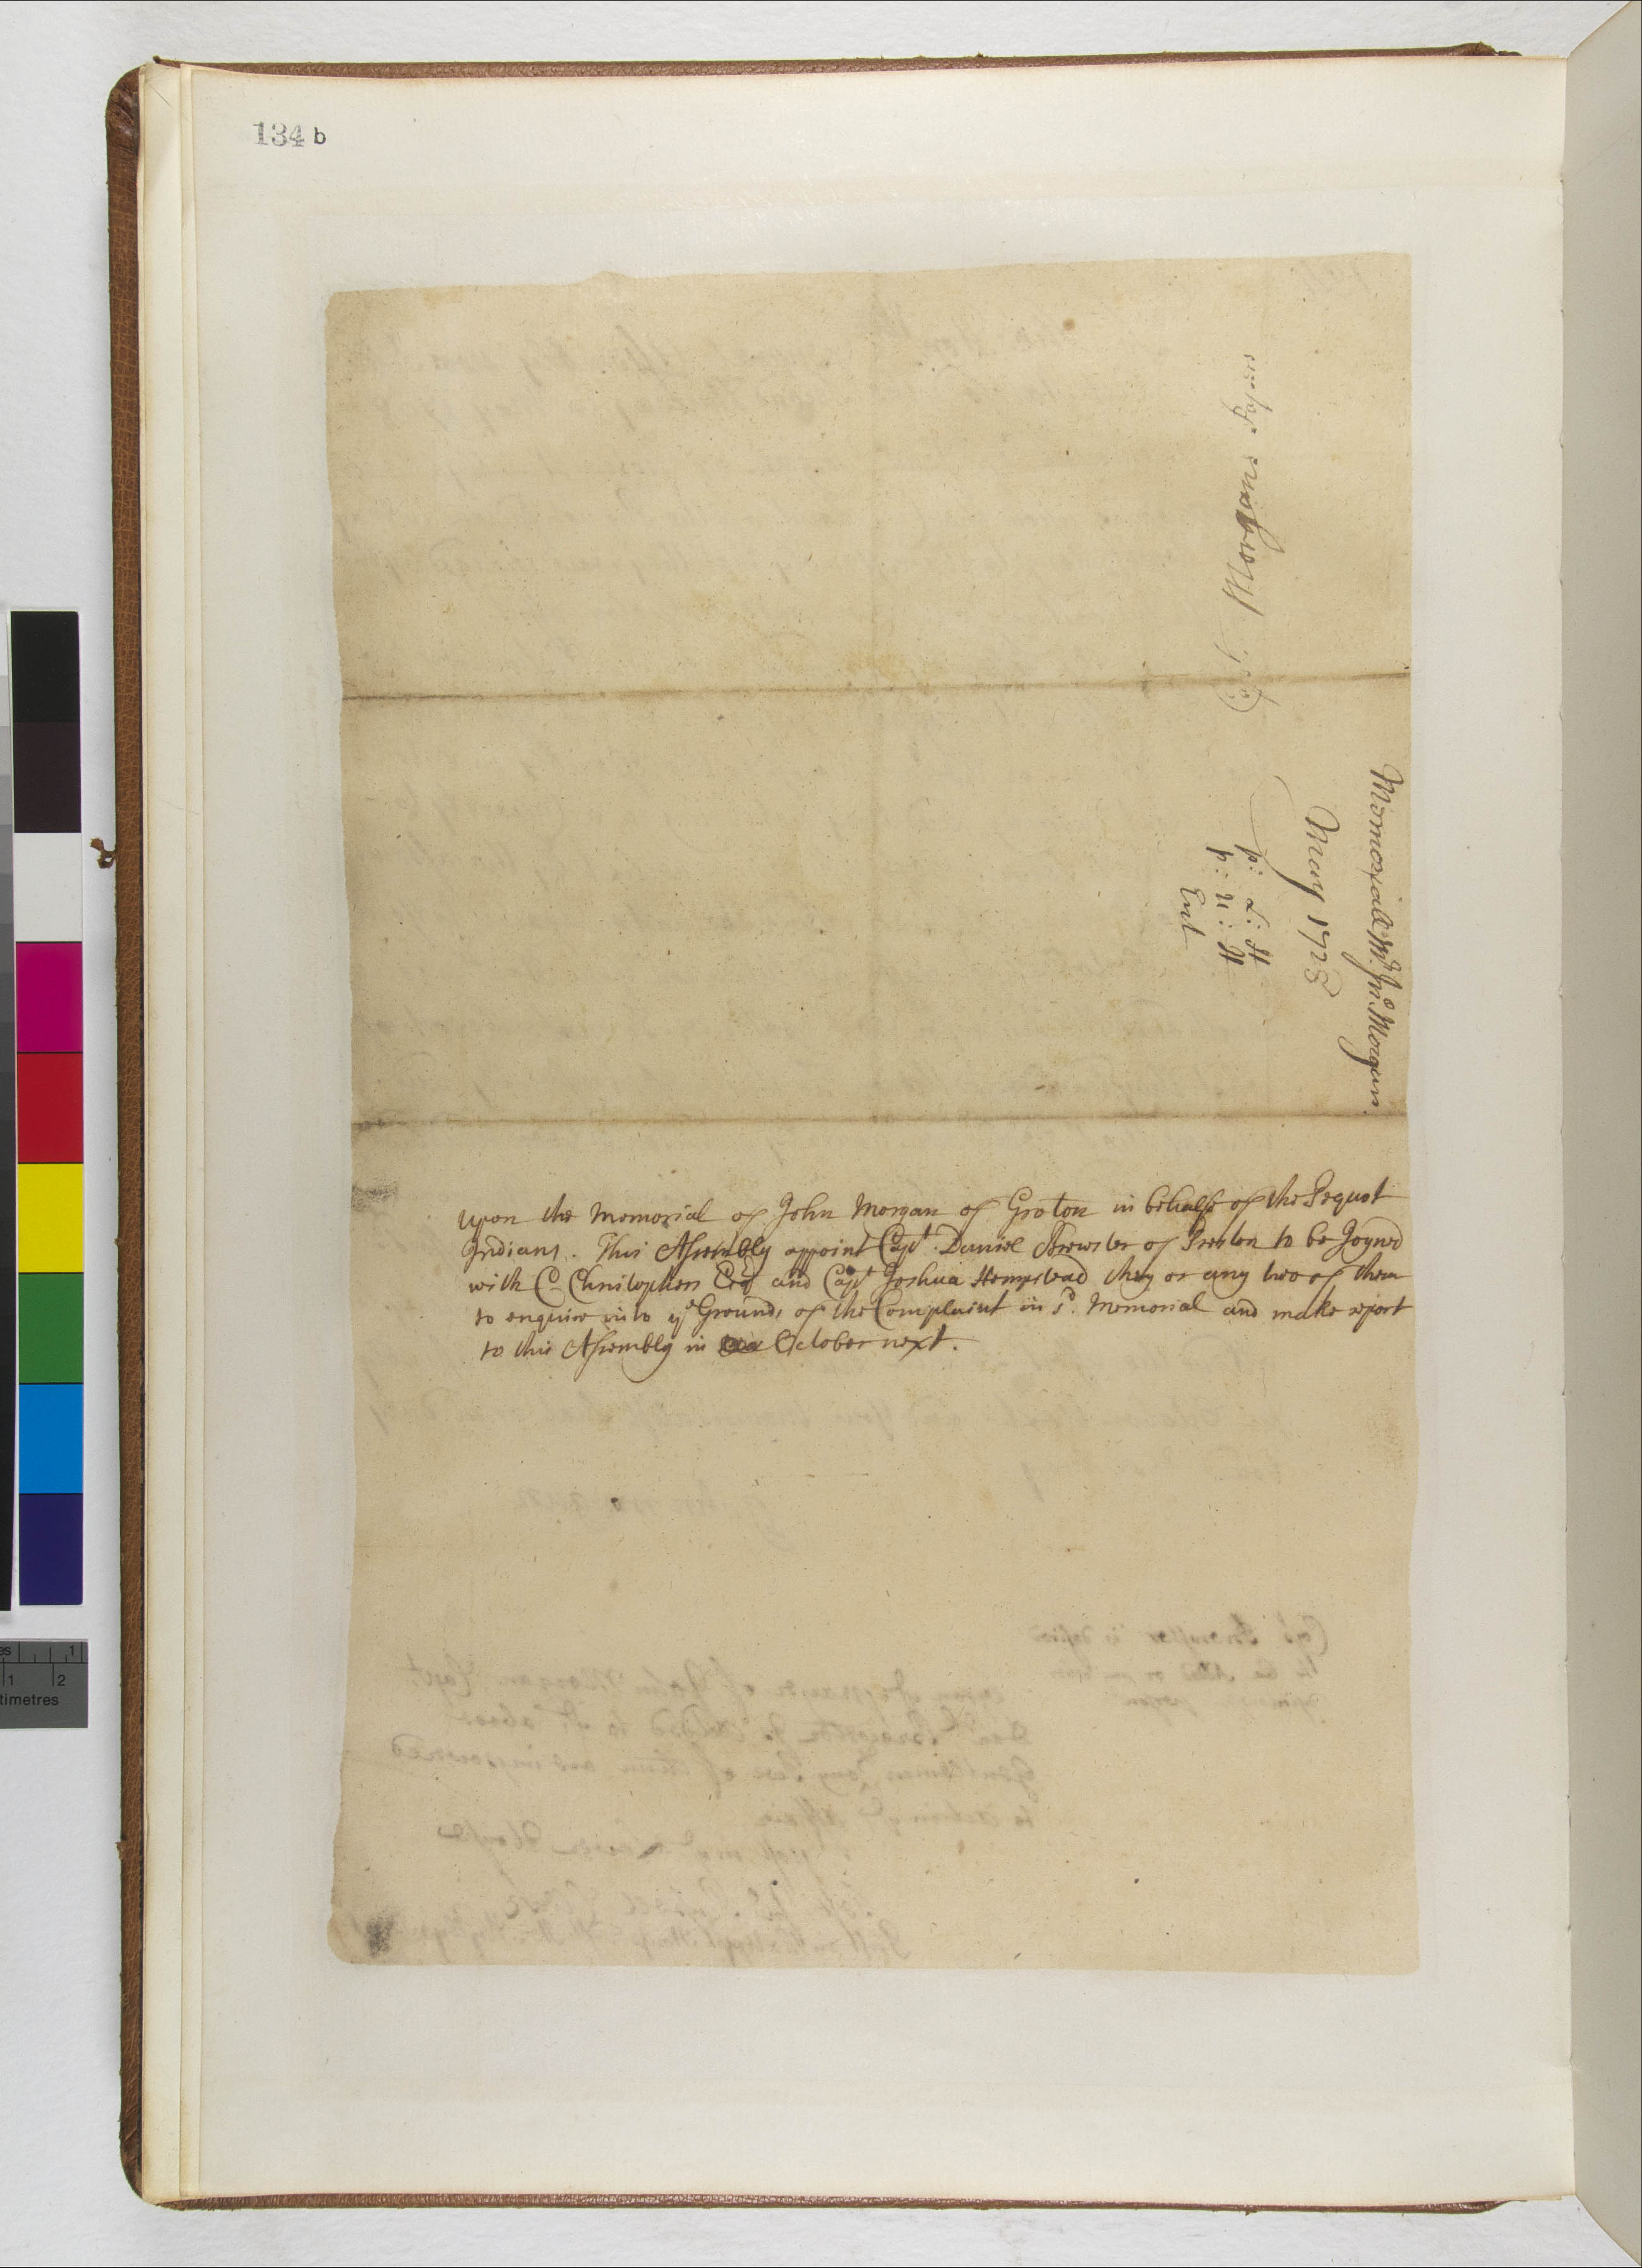 134 b
Capt. Morgans Papers
Memoriall Mr. Jno. Morgan
May 1728
p: L: H
p: U: H
Ent
Upon the Memorial of John Morgan of Groton in behalfe of the Pequot
Indians. This Assembly appoint Capt. Daniel Brewster of Preston to be Joyned
with C Christophers Esqr and Capt Joshua Hempstead they or any two of them
to enquire into ye Grounds of the Complaint in sd. Memorial and make report
to this Assembly in October next.